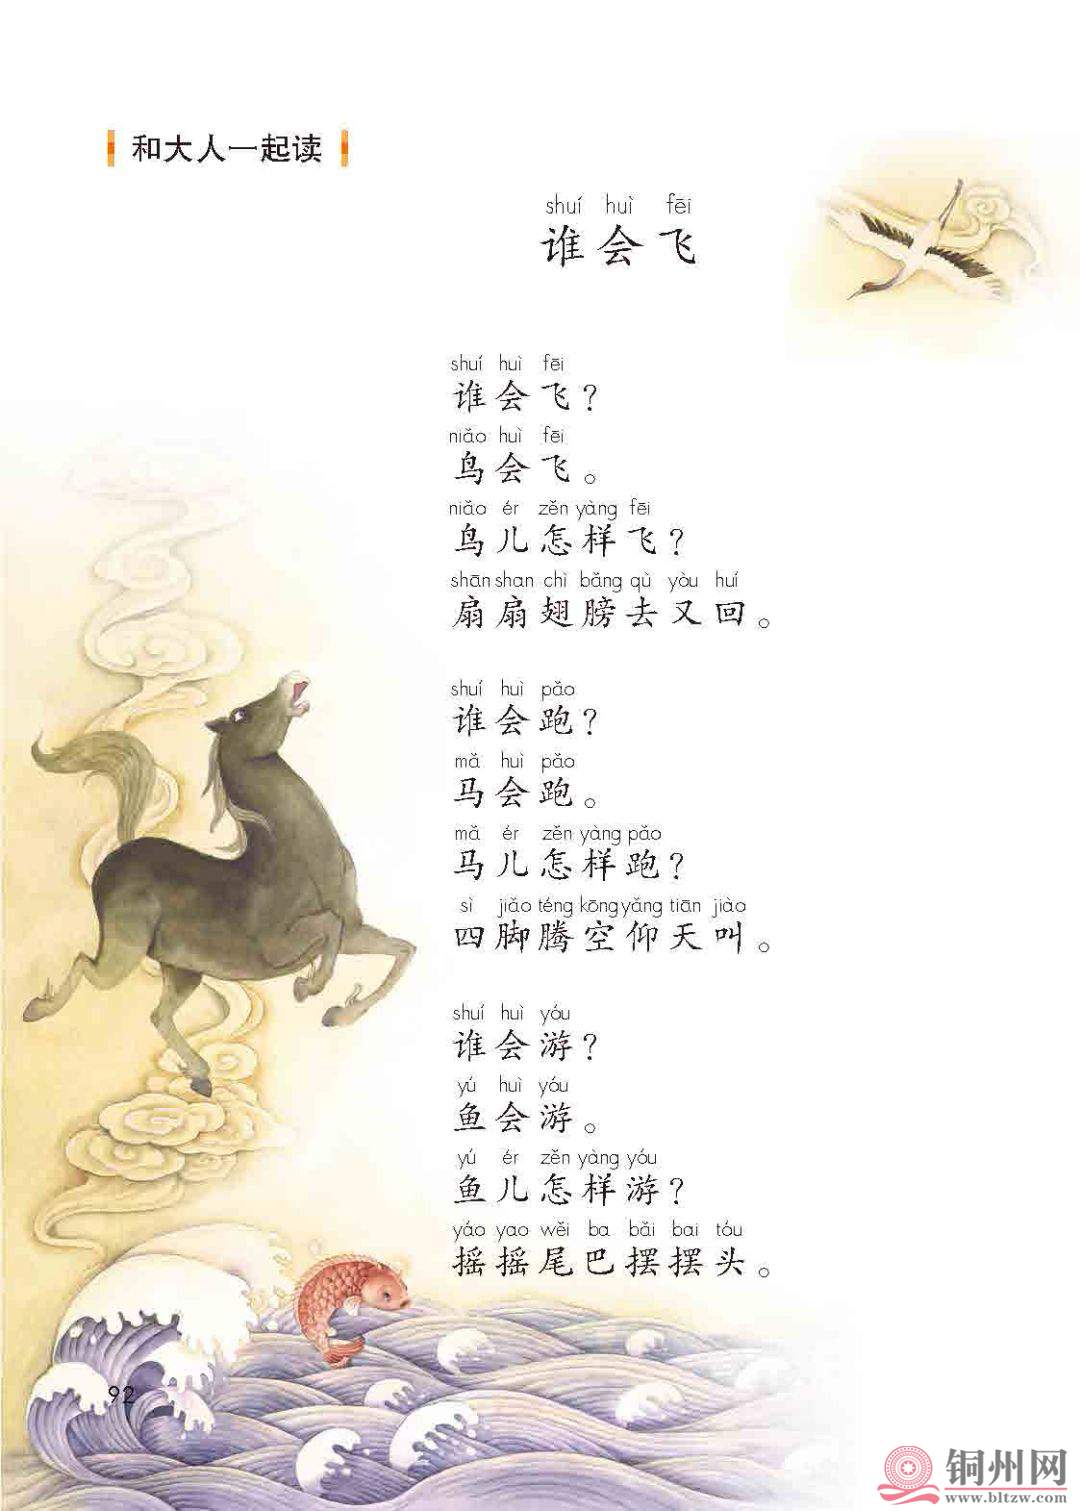 和大人一起读
shuí huì fēi
谁会飞
shuí huì fēi
谁会飞？
niǎo huì fēi
鸟会飞。
niǎo ér zěn yàng fēi
鸟儿怎样飞？
shān shan chì bǎng qù yòu huí
扇扇翅膀去又回。
shuí huì pǎo
谁会跑？
mǎ huì pǎo
马会跑。
mǎ ér zěn yàng pǎo
马儿怎样跑？
sì jiǎo téng kōng yǎng tiān jiào
四脚腾空仰天叫。
shuí huì yóu
谁会游？
yú huì yóu
鱼会游。
yú ér zěn yàng yóu
鱼儿怎样游？
yáo yao wěi ba bǎi bai tóu
摇摇尾巴摆摆头。
92
铜州网
www.bltzw.com